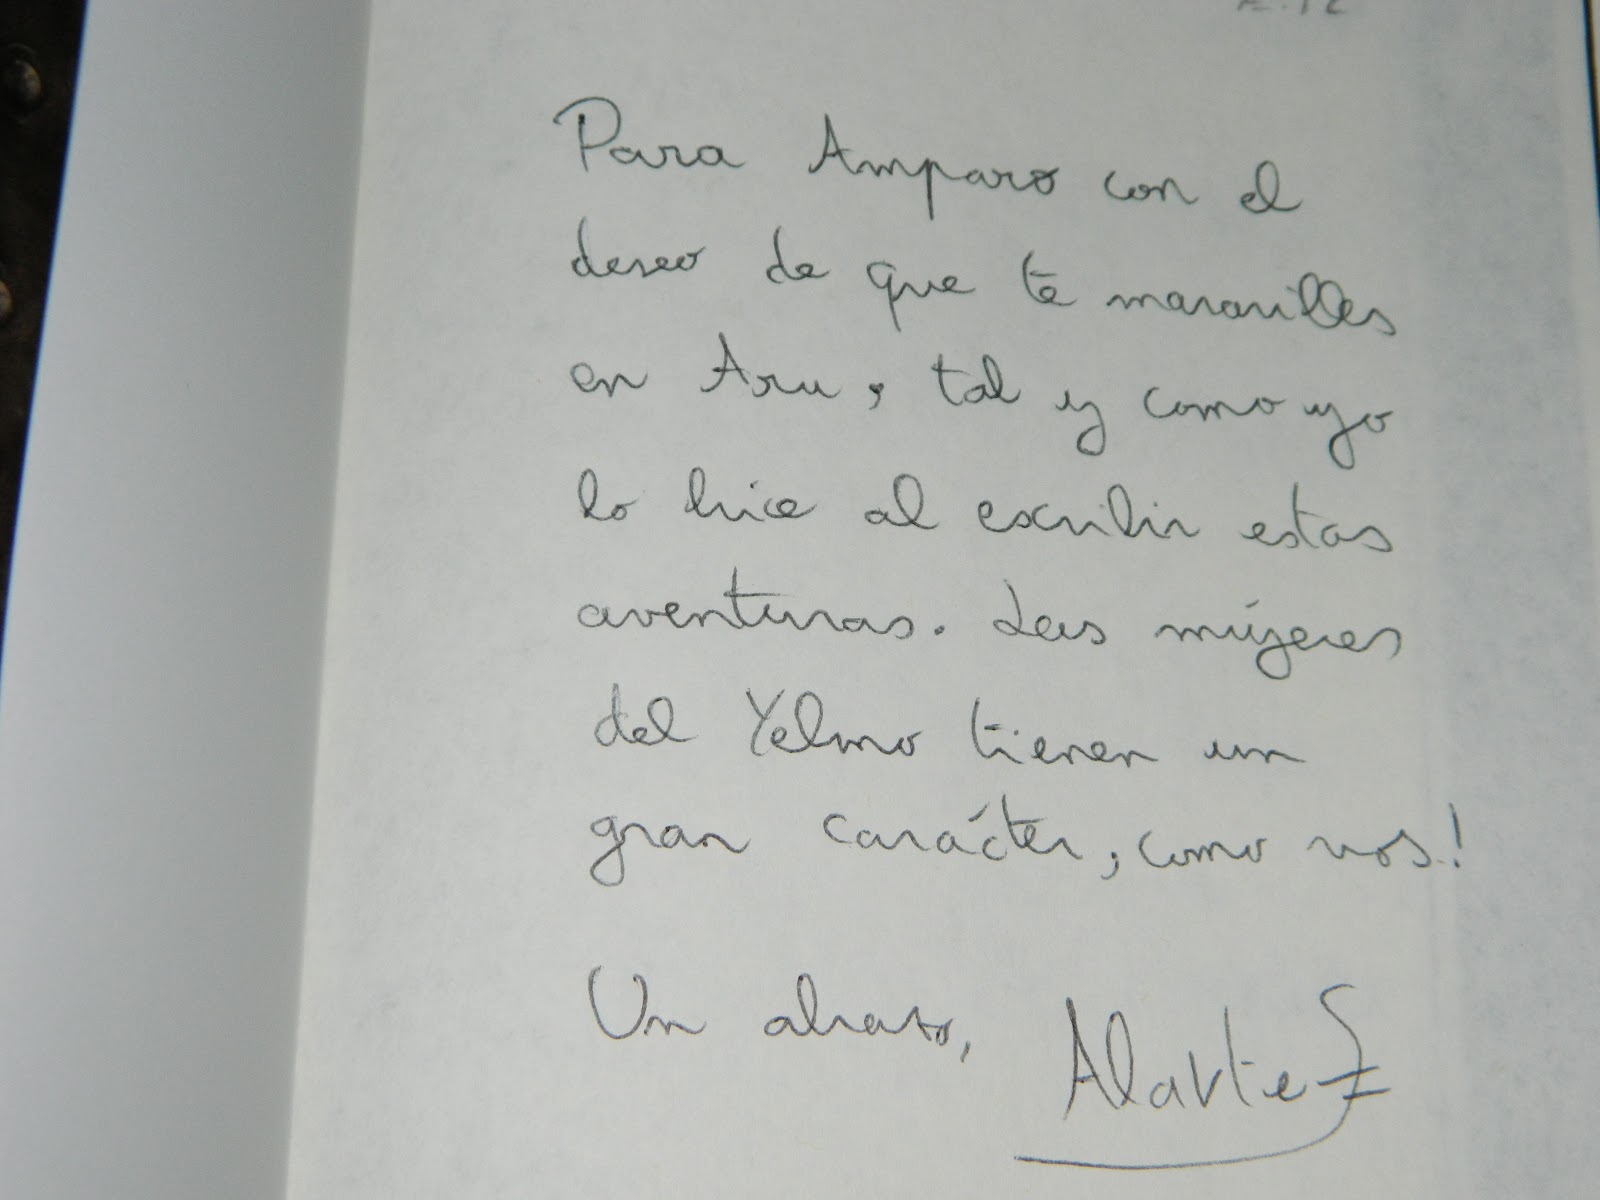 Para Amparo con el
deseo de que te maravilles
en Aru, tal y como yo
lo hice al escribir estas
aventuras. Las mujeres
del Yelmo tienen un
gran carácter, como vos!
Un abrazo,
Alarte